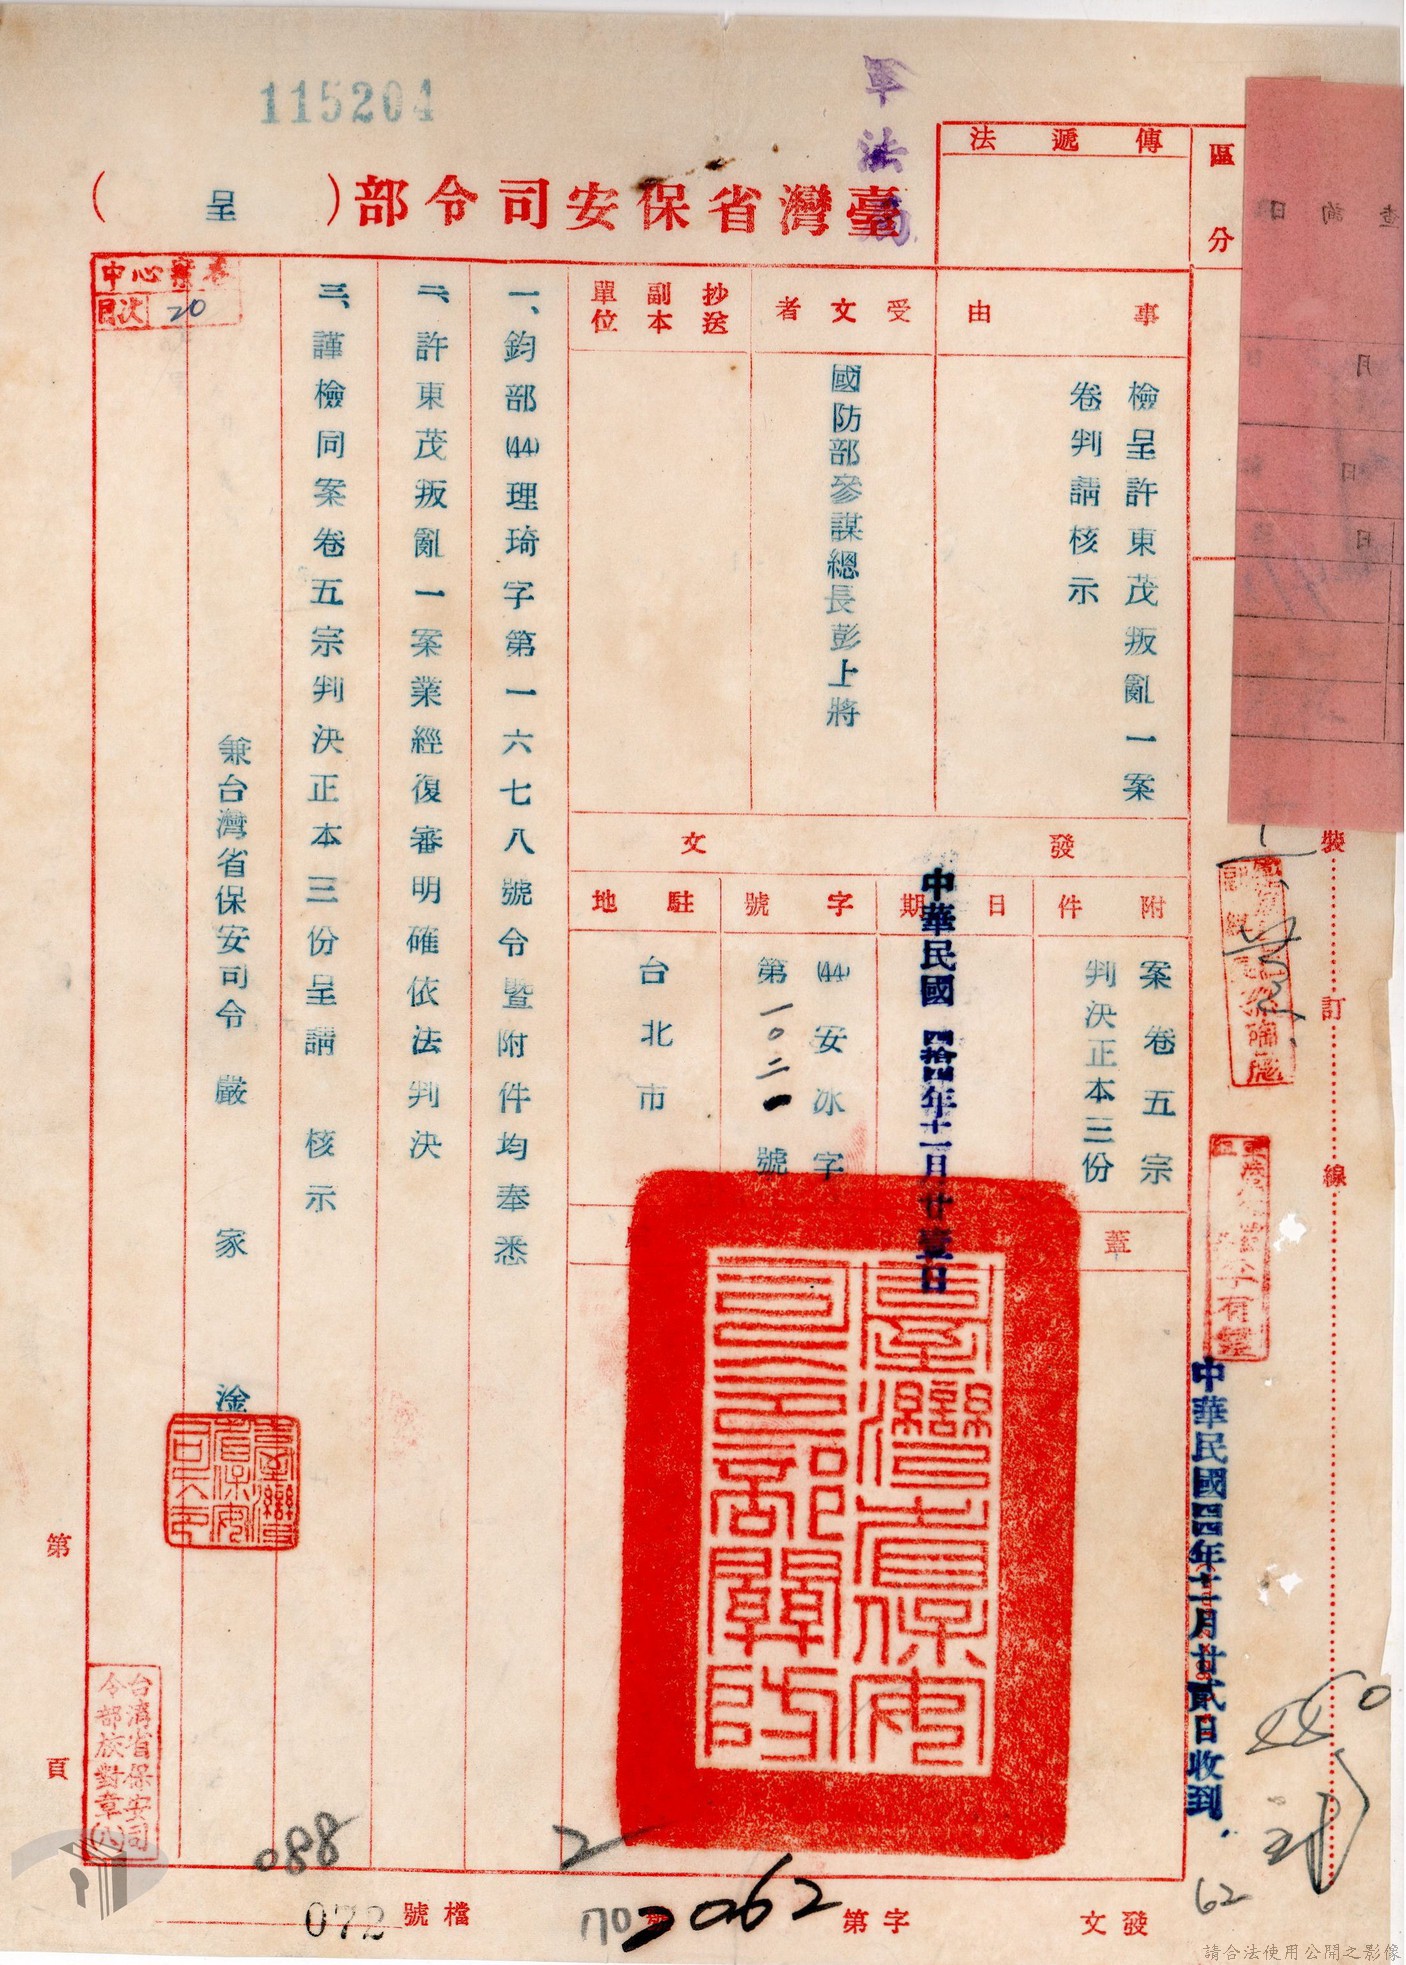 115204
軍法局
臺灣省保安司令部(呈)
傳遞法
區分
事由
檢呈許東茂叛亂一案
卷判請核示
受文者
國防部參謀總長彭上將
抄送副本單位
發文
附件
案卷五宗
判決正本三份
日期
中華民國四拾四年十一月廿壹日
字號
(44)安冰字
第一〇二一號
駐地
台北市
蓋
一、鈞部(44)理琦字第一六七八號令暨附件均奉悉
二、許東茂叛亂一案業經復審明確依法判決
三、謹檢同案卷五宗判決正本三份呈請 核示
兼台灣省保安司令 嚴家淦
目次 20
臺灣省保安司令部關防
中華民國四四年十一月廿貳日收到
裝訂線
第 頁
088
2
62
發文
字第
2062
檔號
072
請合法使用公開之影像